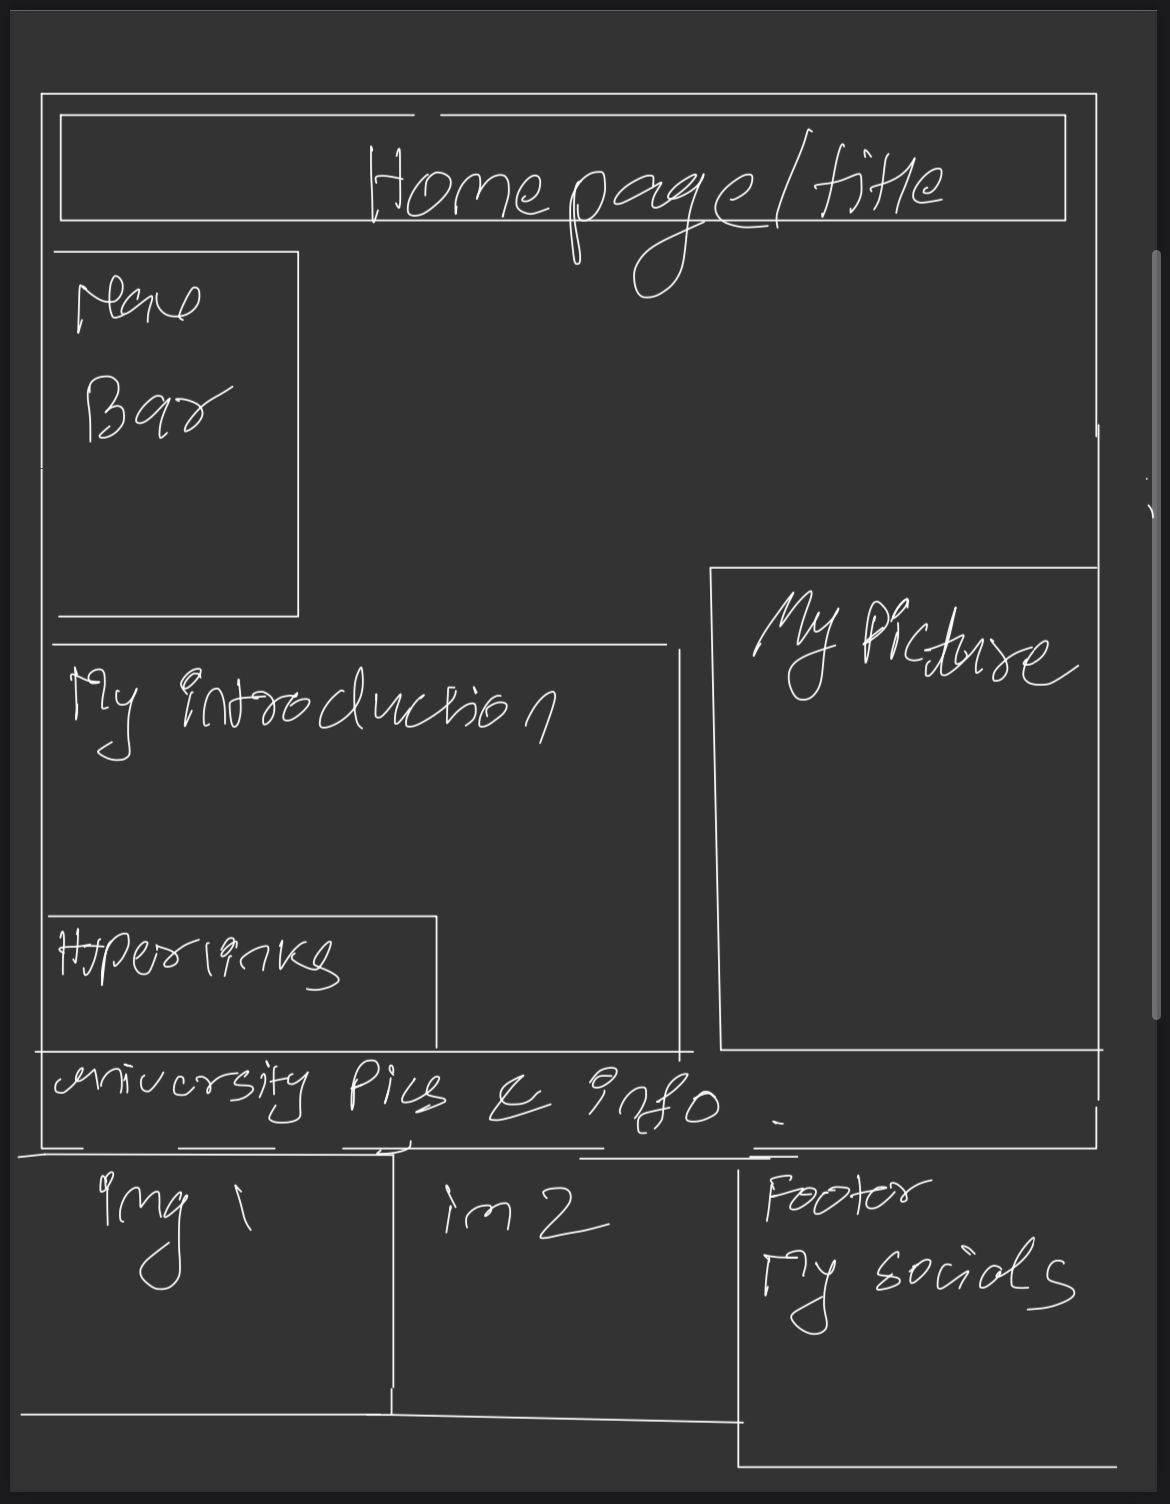 Homepage/title
Nav
Bar
My Picture
My introduction
Hyperlinks
University Pics & info
img 1
im 2
Footer
My socials